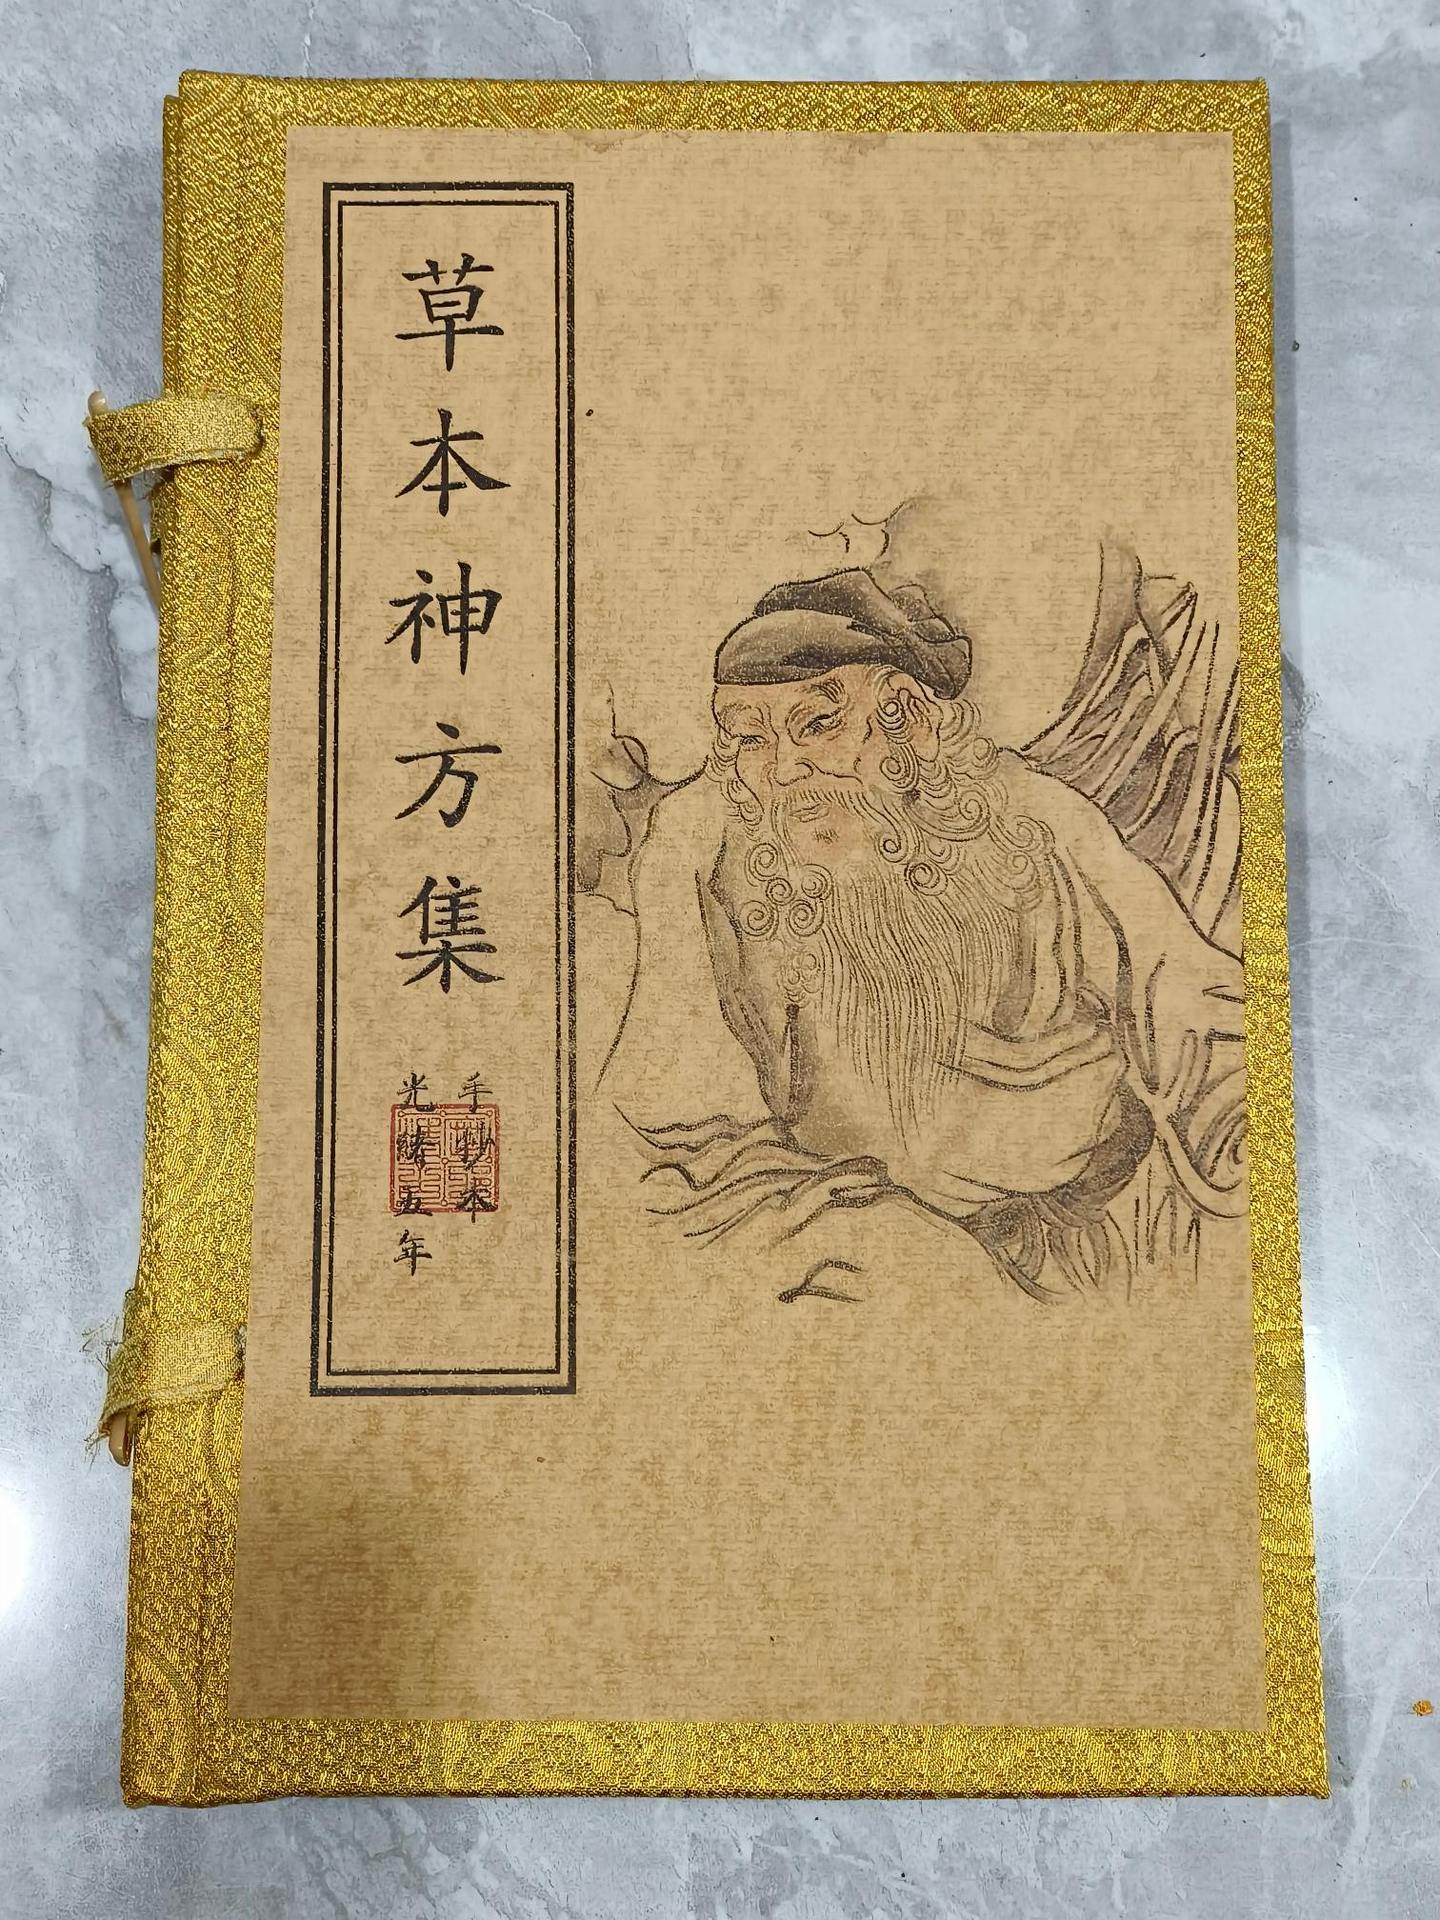 草本神方集
手抄本
光緒五年